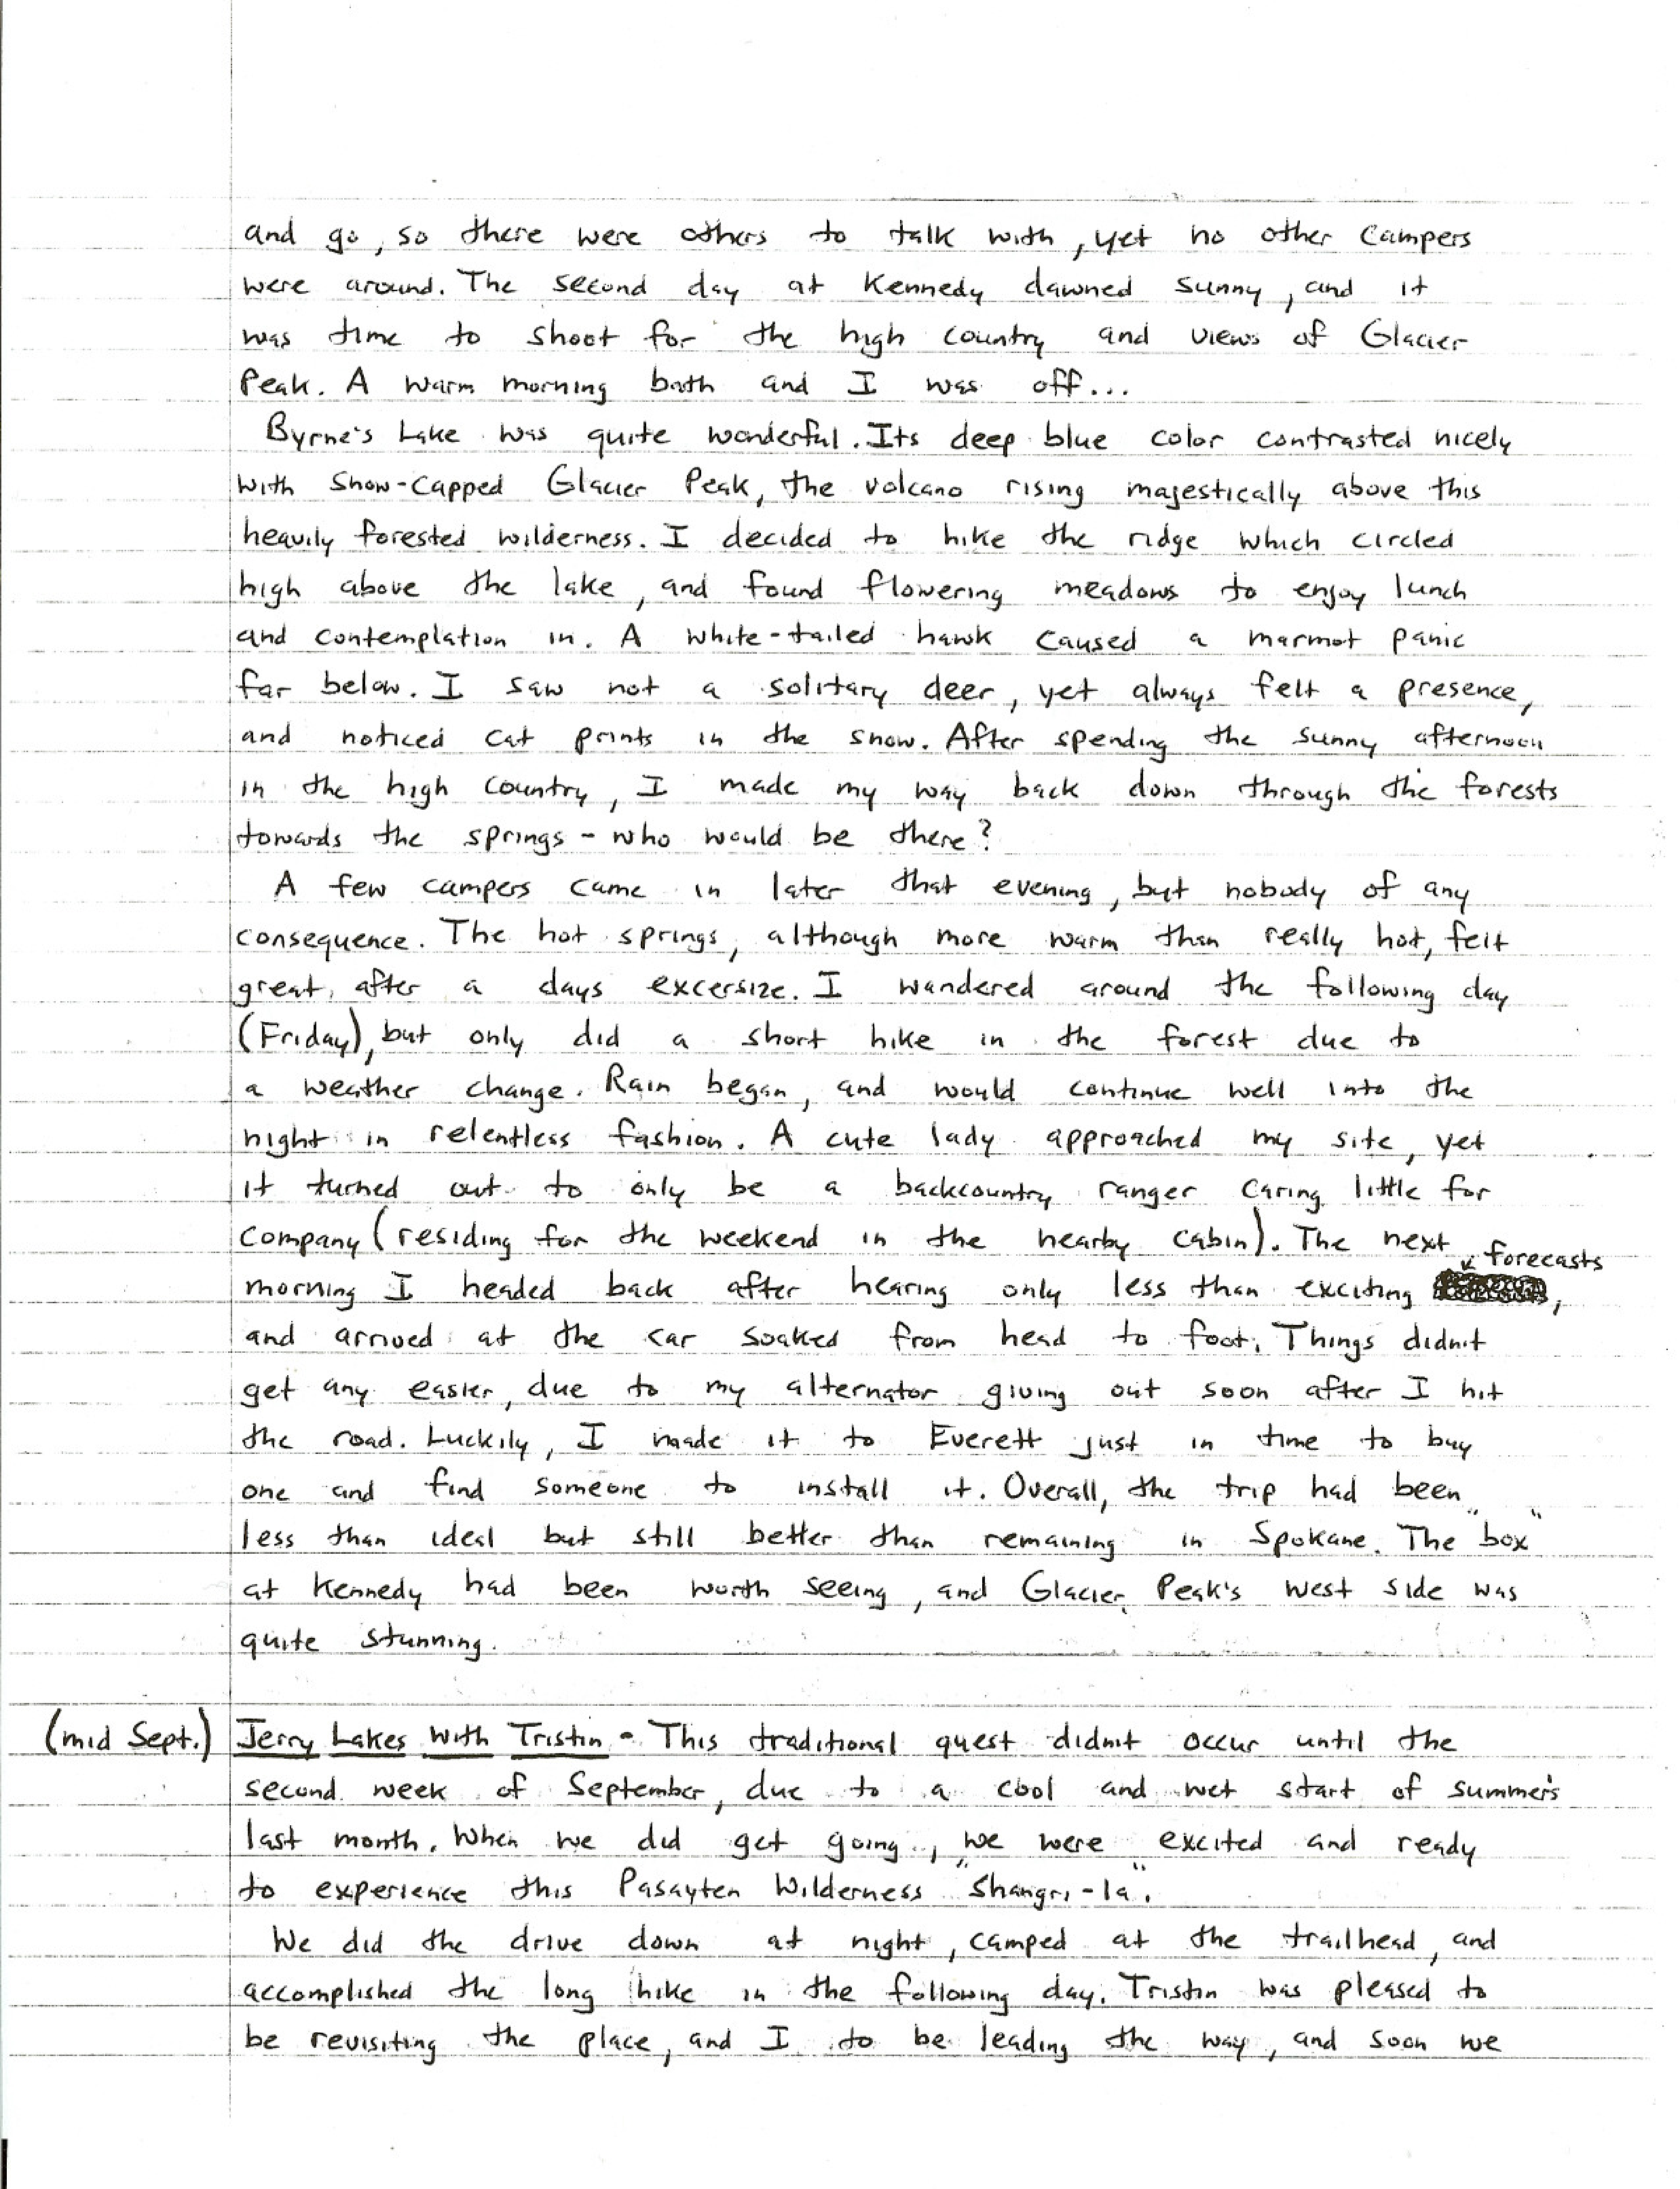 and go, so there were others to talk with, yet no other campers
were around. The second day at Kennedy dawned sunny, and it
was time to shoot for the high country and views of Glacier
Peak. A warm morning bath and I was off...
Byrne's Lake was quite wonderful. Its deep blue color contrasted nicely
with snow-capped Glacier Peak, the volcano rising majestically above this
heavily forested wilderness. I decided to hike the ridge which circled
high above the lake, and found flowering meadows to enjoy lunch
and contemplation in. A white-tailed hawk caused a marmot panic
far below. I saw not a solitary deer, yet always felt a presence,
and noticed cat prints in the snow. After spending the sunny afternoon
in the high country, I made my way back down through the forests
towards the springs - who would be there?
A few campers came in later that evening, but nobody of any
consequence. The hot springs, although more warm than really hot, felt
great after a days excersize. I wandered around the following day
(Friday), but only did a short hike in the forest due to
a weather change. Rain began, and would continue well into the
night in relentless fashion. A cute lady approached my site, yet
it turned out to only be a backcountry ranger caring little for
company (residing for the weekend in the nearby cabin). The next
morning I headed back after hearing only less than exciting forecasts,
and arrived at the car soaked from head to foot. Things didn't
get any easier, due to my alternator giving out soon after I hit
the road. Luckily, I made it to Everett just in time to buy
one and find someone to install it. Overall, the trip had been
less than ideal but still better than remaining in Spokane. The "box"
at Kennedy had been worth seeing, and Glacier Peak's west side was
quite stunning.
(mid Sept.) Jerry Lakes with Tristin - This traditional quest didn't occur until the
second week of September, due to a cool and wet start of summer's
last month. When we did get going, we were excited and ready
to experience this Pasayten Wilderness "Shangri-la".
We did the drive down at night, camped at the trailhead, and
accomplished the long hike in the following day. Tristin was pleased to
be revisiting the place, and I to be leading the way, and soon we